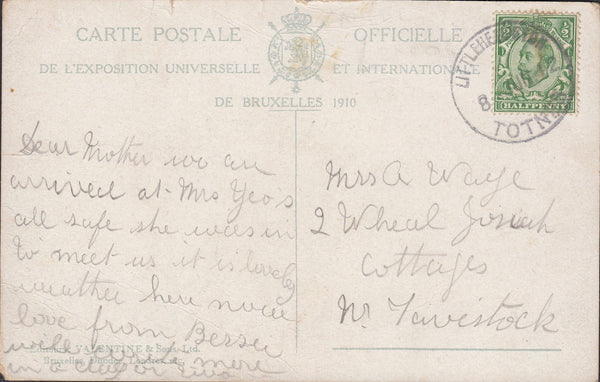 CARTE POSTALE OFFICIELLE
DE L'EXPOSITION UNIVERSELLE ET INTERNATIONALE
DE BRUXELLES 1910
HALFPENNY
TOTNES
Dear Mother we are
arrived at Mrs Yeo's
all safe she was in
to meet us it is lovely
weather here now
love from Bessie
will write more
in a day or two
Mrs A Waye
2 Wheal Josiah
Cottages
Nr Tavistock
VALENTINE & Sons, Ltd.
Bruxelles, Dundee, Londres, etc.